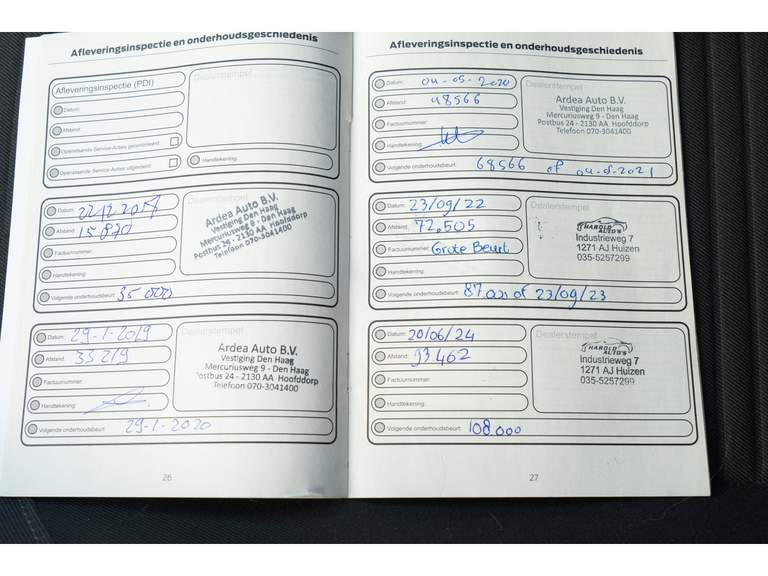 Afleveringsinspectie en onderhoudsgeschiedenis
Afleveringsinspectie (PDI)
Datum:
Afstand:
Openstaande Service-Acties gecontroleerd:
Openstaande Service-Acties uitgevoerd:
Dealerstempel
Handtekening:
Datum: 22/12 2017
Afstand: 15 870
Factuurnummer:
Handtekening:
Ardea Auto B.V.
Vestiging Den Haag
Mercuriusweg 9 - Den Haag
Postbus 24 - 2130 AA Hoofddorp
Telefoon 070-3041400
Volgende onderhoudsbeurt: 35 000
Datum: 29-1-2019
Afstand: 33 219
Factuurnummer:
Handtekening:
Dealerstempel
Ardea Auto B.V.
Vestiging Den Haag
Mercuriusweg 9 - Den Haag
Postbus 24 - 2130 AA Hoofddorp
Telefoon 070-3041400
Volgende onderhoudsbeurt: 29-1-2020
26
Afleveringsinspectie en onderhoudsgeschiedenis
Datum: 04-05-2020
Afstand: 48566
Factuurnummer:
Handtekening:
Dealerstempel
Ardea Auto B.V.
Vestiging Den Haag
Mercuriusweg 9 - Den Haag
Postbus 24 - 2130 AA Hoofddorp
Telefoon 070-3041400
Volgende onderhoudsbeurt: 68566 of 04-05-2021
Datum: 23/09/22
Afstand: 72.505
Factuurnummer: Grote Beurt
Handtekening:
Dealerstempel
HAROLD
AUTO'S
Industrieweg 7
1271 AJ Huizen
035-5257299
Volgende onderhoudsbeurt: 87.000 of 23/09/23
Datum: 20/06/24
Afstand: 93 462
Factuurnummer:
Handtekening:
Dealerstempel
HAROLD
AUTO'S
Industrieweg 7
1271 AJ Huizen
035-5257299
Volgende onderhoudsbeurt: 108.000
27